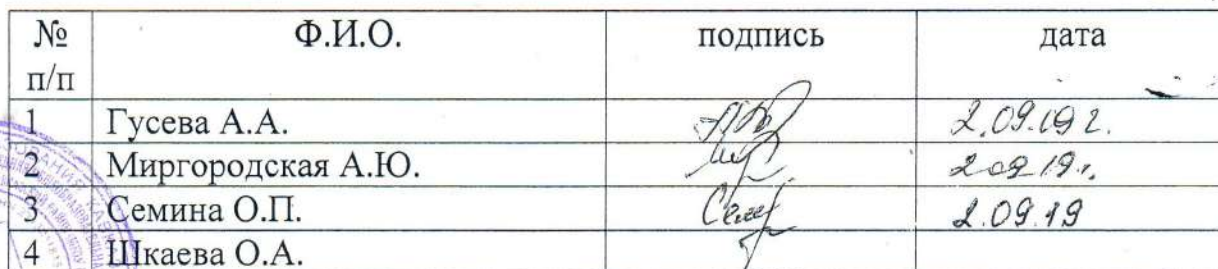 № п/п Ф.И.О. подпись дата
1 Гусева А.А. 2.09.19 г.
2 Миргородская А.Ю. 2.09.19 г.
3 Семина О.П. 2.09.19
4 Шкаева О.А.